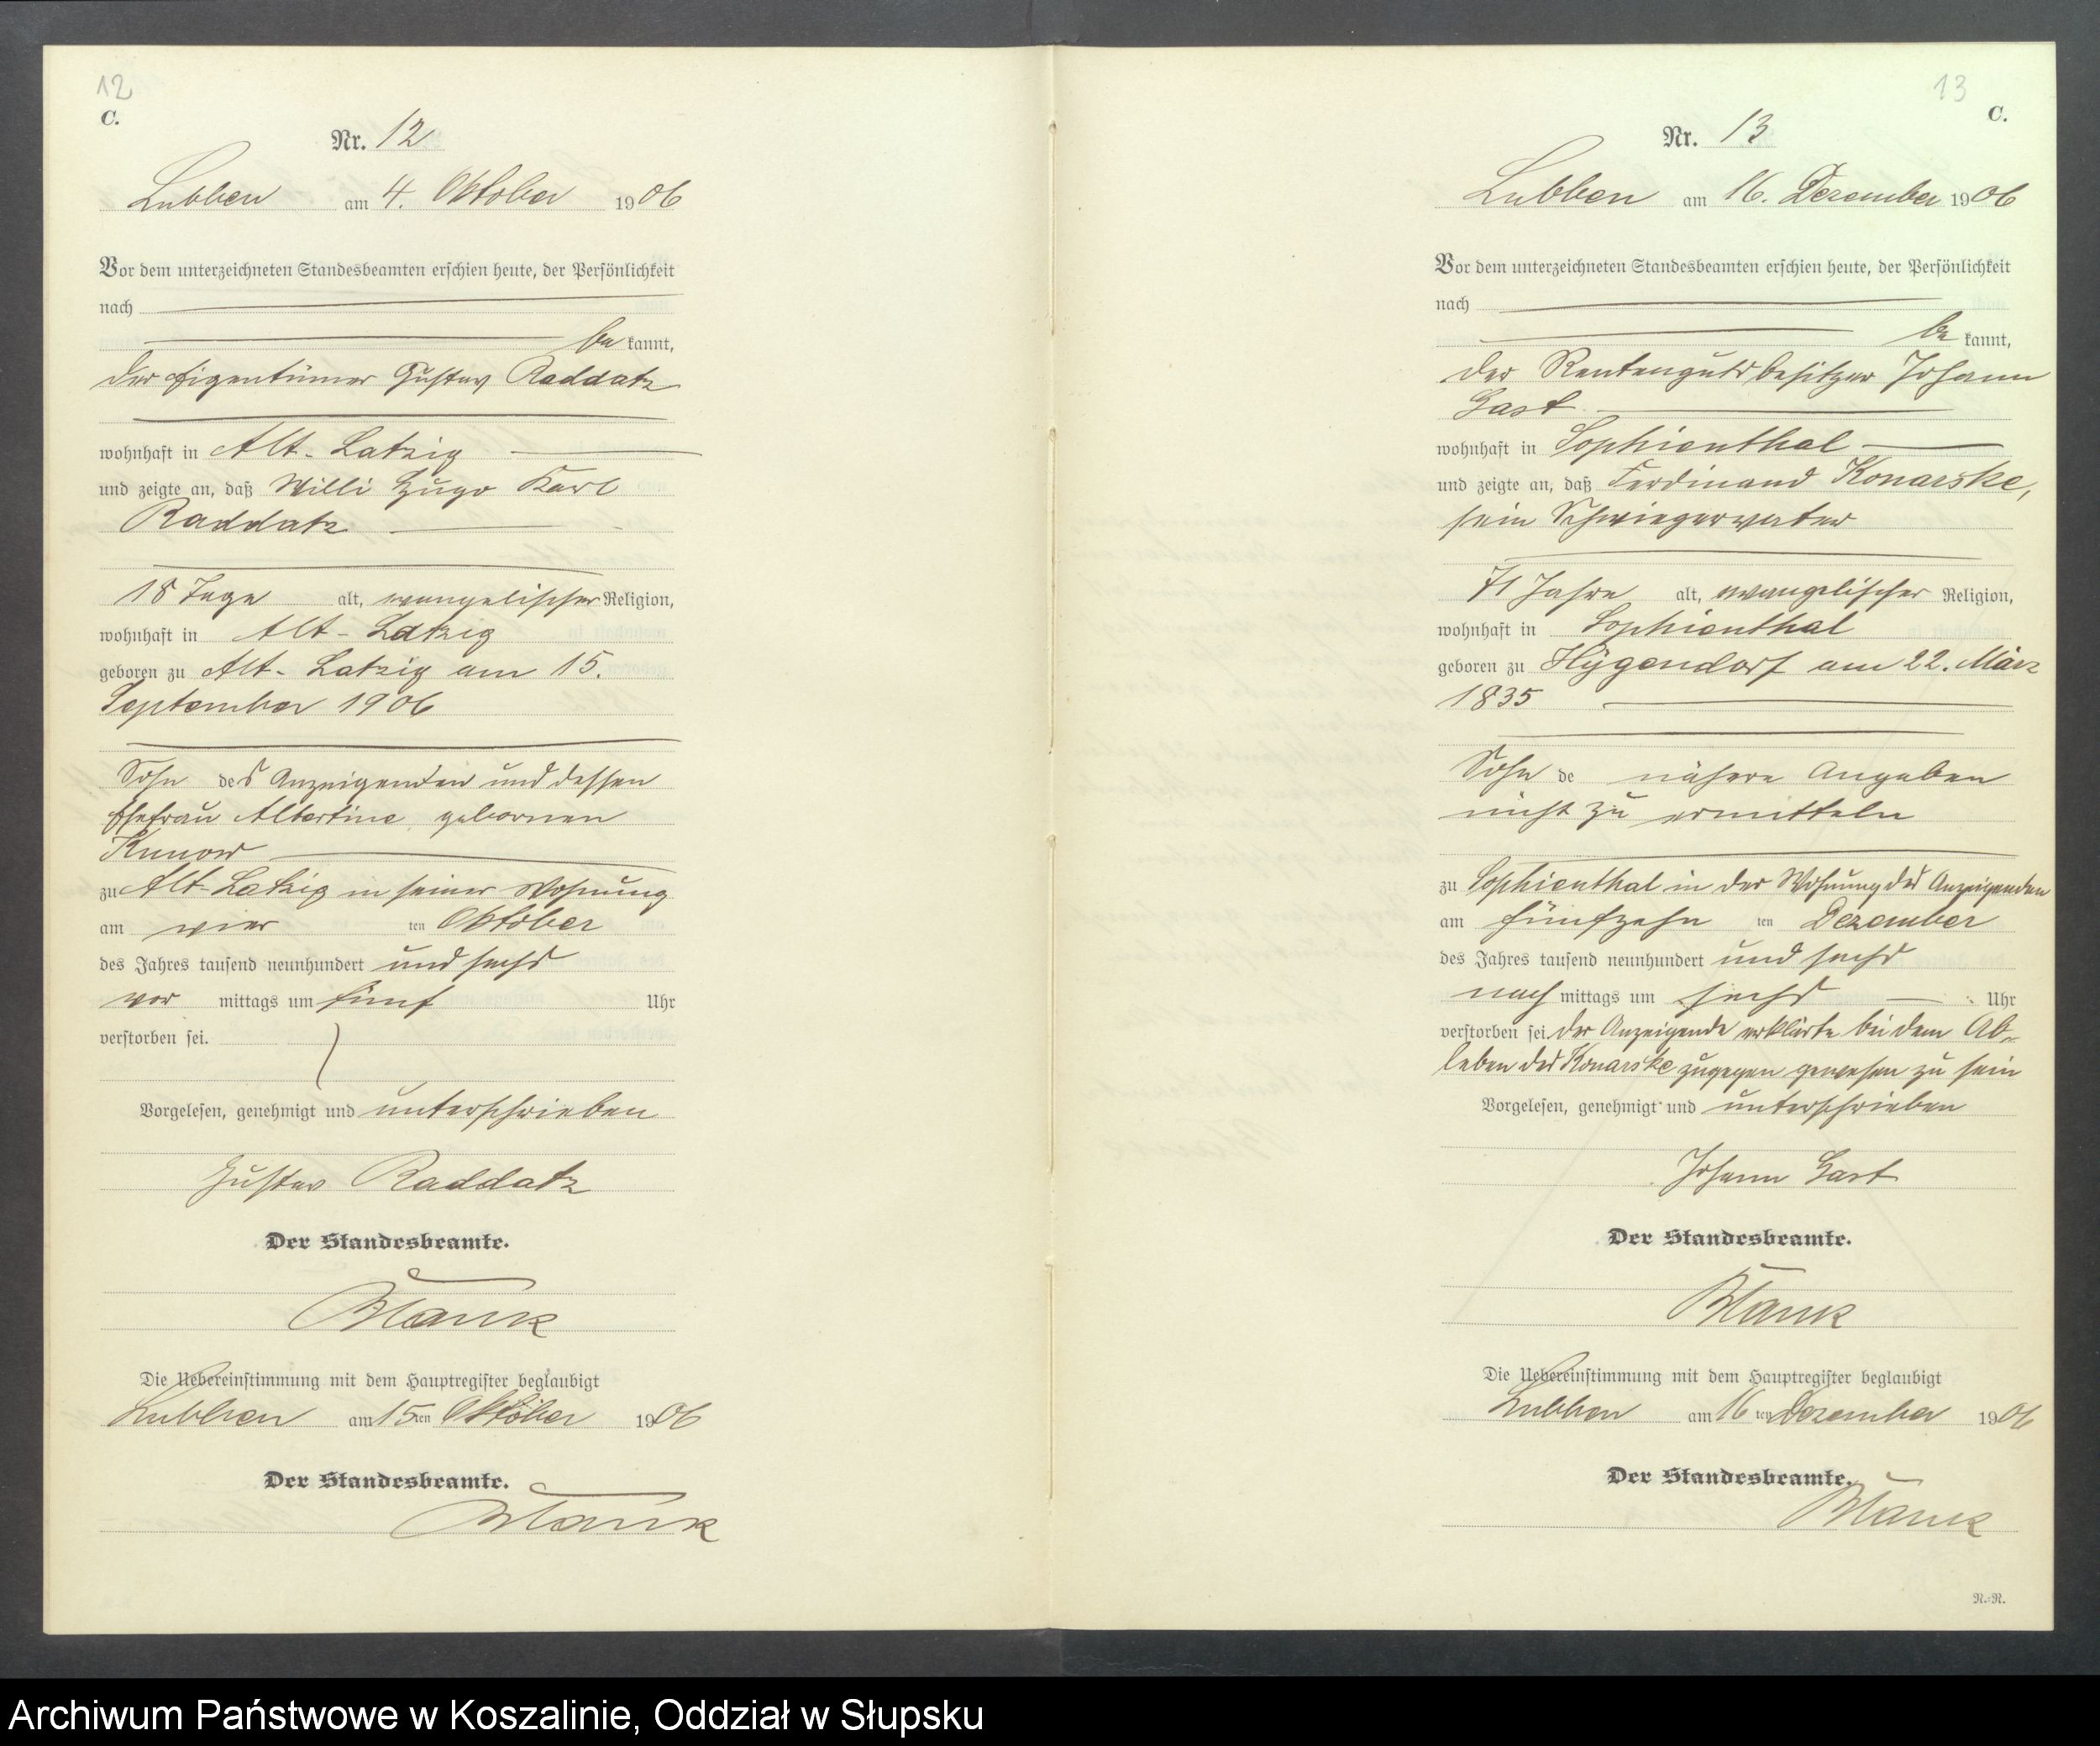 12
C.
Nr. 12
Lubben am 4. Oktober 1906
Vor dem unterzeichneten Standesbeamten erschien heute, der Persönlichkeit
nach
be kannt,
der Eigentümer Gustav Raddatz
wohnhaft in Alt-Latzig
und zeigte an, daß Willi Hugo Karl
Raddatz
18 Tage alt, evangelischer Religion,
wohnhaft in Alt-Latzig
geboren zu Alt-Latzig am 15.
September 1906
Sohn des Anzeigenden und dessen
Ehefrau Albertine gebornen
Kunow
zu Alt-Latzig in seiner Wohnung
am vier ten Oktober
des Jahres tausend neunhundert und sechs
vor mittags um fünf Uhr
verstorben sei.
Vorgelesen, genehmigt und unterschrieben
Gustav Raddatz
Der Standesbeamte.
Blank
Die Uebereinstimmung mit dem Hauptregister beglaubigt
Lubben am 15ten Oktober 1906
Der Standesbeamte.
Blank
13
C.
Nr. 13
Lubben am 16. Dezember 1906
Vor dem unterzeichneten Standesbeamten erschien heute, der Persönlichkeit
nach
be kannt,
der Rentengutsbesitzer Johann
Gast
wohnhaft in Sophienthal
und zeigte an, daß Ferdinand Konarske,
sein Schwiegervater
71 Jahre alt, evangelischer Religion,
wohnhaft in Sophienthal
geboren zu Hygendorf am 22. März
1835
Sohn de nähere Angaben
nicht zu ermitteln
zu Sophienthal in der Wohnung des Anzeigenden
am fünfzehn ten Dezember
des Jahres tausend neunhundert und sechs
nach mittags um sechs Uhr
verstorben sei. Der Anzeigende erklärte bei dem Ab-
leben des Konarske zugegen gewesen zu sein
Vorgelesen, genehmigt und unterschrieben
Johann Gast
Der Standesbeamte.
Blank
Die Uebereinstimmung mit dem Hauptregister beglaubigt
Lubben am 16 ten Dezember 1906
Der Standesbeamte.
Blank
N.-N.
Archiwum Państwowe w Koszalinie, Oddział w Słupsku